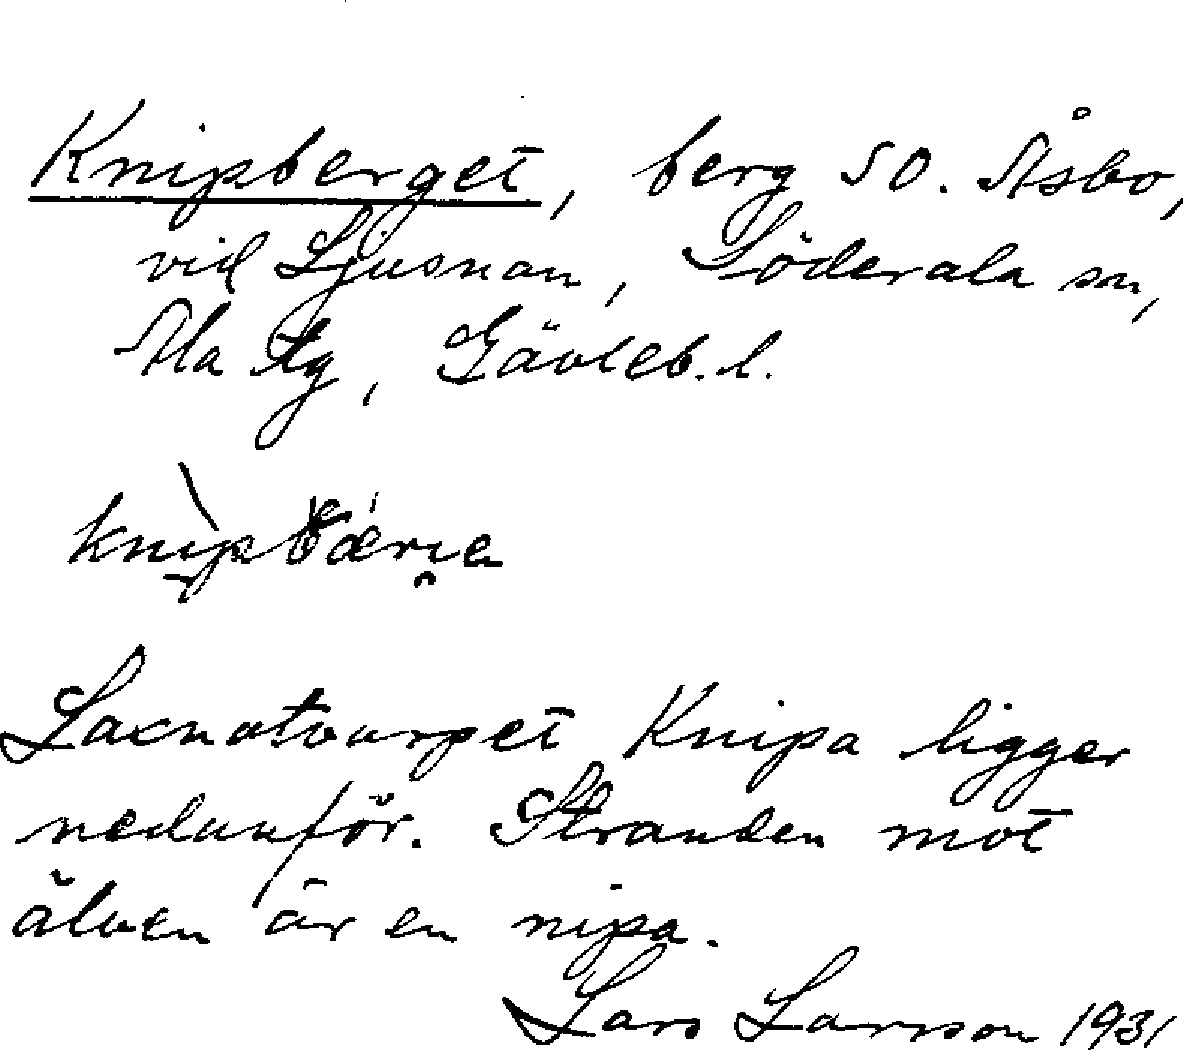 Knipberget, berg SO. Åsbo,
vid Ljusnan, Söderala sn,
Ala tg, Gävleb. l.
Laxnotvarpet Knipa ligger
nedanför. Stranden mot
älven är en nipa.
Lars Larsson 1931